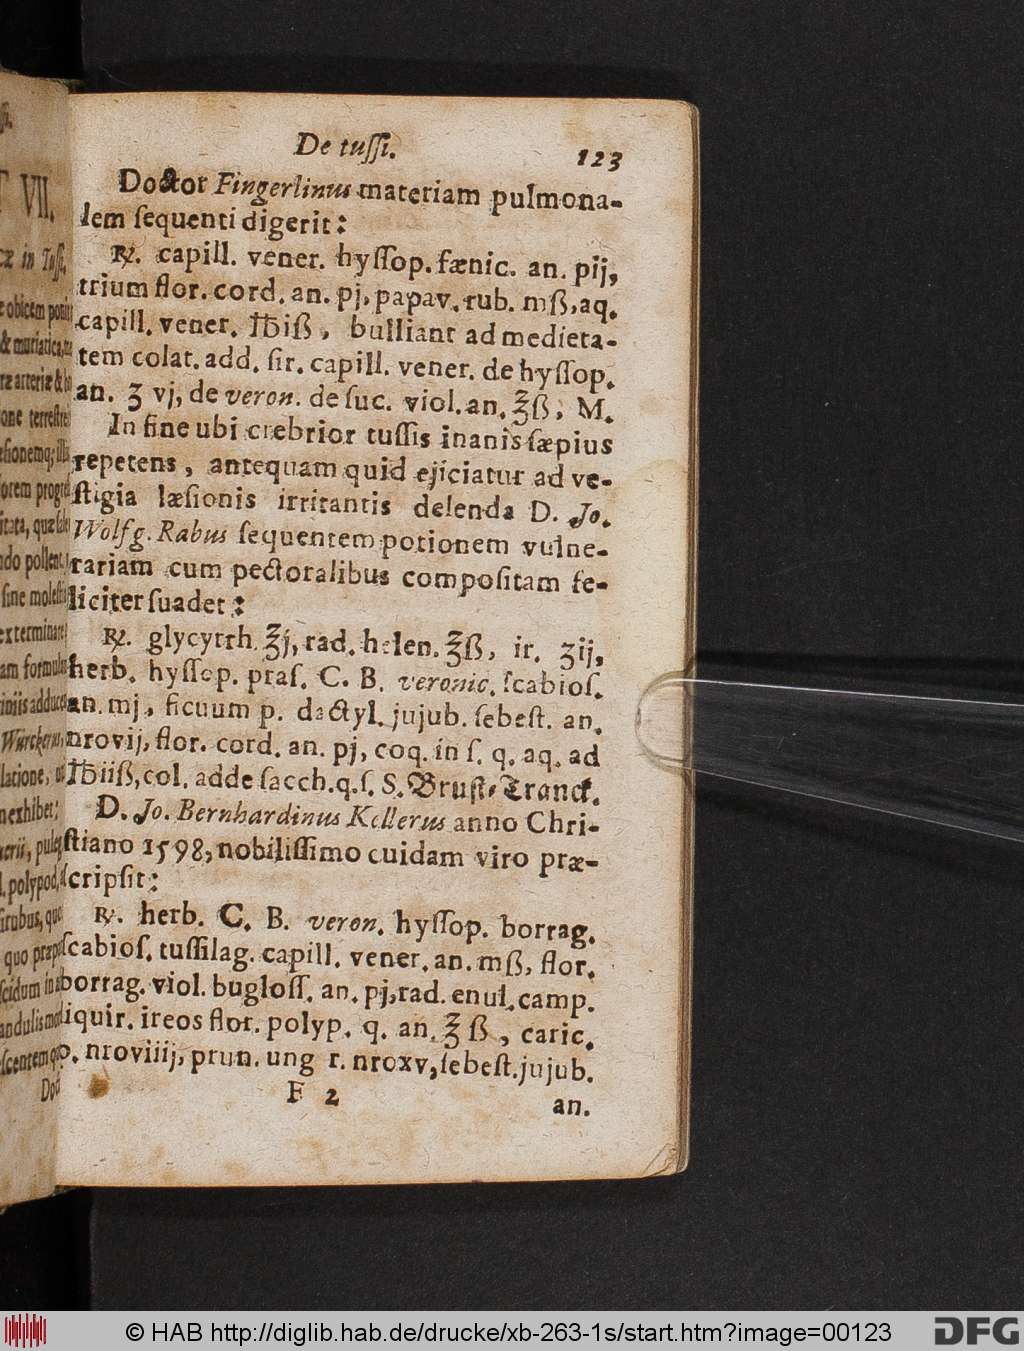 De tuſſi. 123
Doctor Fingerlinus materiam pulmona-
lem ſequenti digerit:
℞. capill. vener. hyſſop. fænic. an. pij,
trium flor. cord. an. pj, papav. rub. mß, aq.
capill. vener. ℔iß, bulliant ad medieta-
tem colat. add. ſir. capill. vener. de hyſſop.
an. ʒ vj, de veron. de ſuc. viol. an. ℥ß, M.
In fine ubi crebrior tuſſis inanis ſæpius
repetens, antequam quid ejiciatur ad ve-
ſtigia læſionis irritantis delenda D. Jo.
Wolfg. Rabus ſequentem potionem vulne-
rariam cum pectoralibus compoſitam fe-
liciter ſuadet:
℞. glycyrrh. ℥j, rad. helen. ℥ß, ir. ʒij,
herb. hyſſop. praſ. C. B. veronic. ſcabioſ.
an. mj, ficuum p. dactyl. jujub. ſebeſt. an.
nrovij, flor. cord. an. pj, coq. in ſ. q. aq. ad
℔iiß, col. adde ſacch. q. ſ. S. Bruſt-Tranck.
D. Jo. Bernhardinus Kellerus anno Chri-
ſtiano 1598, nobiliſſimo cuidam viro præ-
ſcripſit:
℞. herb. C. B. veron. hyſſop. borrag.
ſcabioſ. tuſſilag. capill. vener. an. mß, flor.
borrag. viol. bugloſſ. an. pj, rad. enul. camp.
liquir. ireos flor. polyp. q. an. ℥ ß, caric.
p. nroviiij, prun. ung r. nroxv, ſebeſt. jujub.
F 2 an.
VII.
in Tuſſ.
obicem
& muriatica,
arteriæ &
terreſtre
pollent
ſine
exterminare
formul
Wurckerus,
exhibet:
polypod.
quo
Doct
© HAB http://diglib.hab.de/drucke/xb-263-1s/start.htm?image=00123
DFG